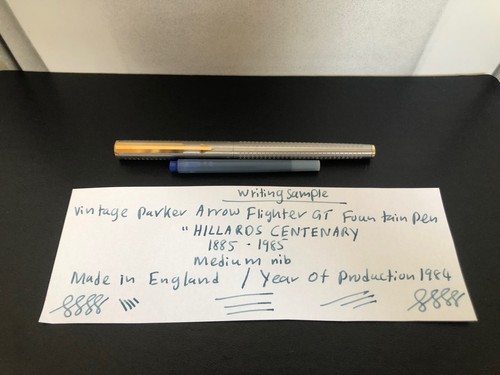 Writing Sample
Vintage Parker Arrow Flighter GT Fountain Pen
" HILLARDS CENTENARY
1885 - 1985
Medium nib
Made in England / Year Of Production 1984